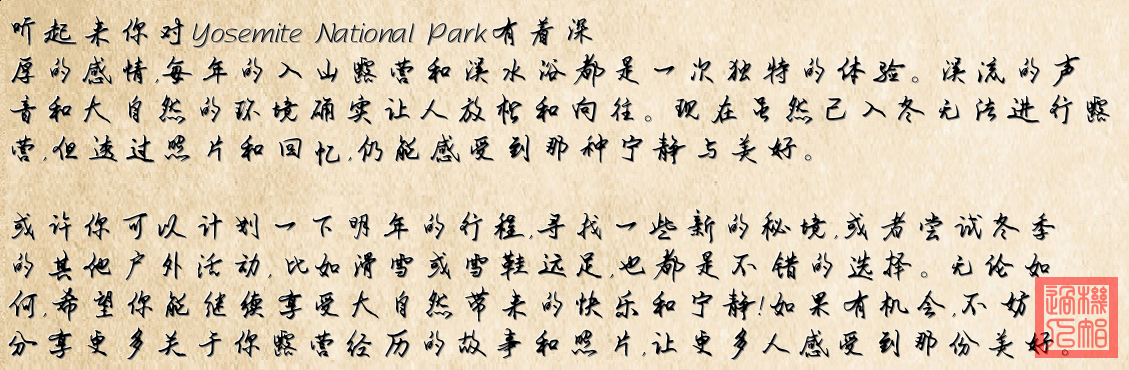 听起来你对Yosemite National Park有着深
厚的感情,每年的入山露营和溪水浴都是一次独特的体验。溪流的声
音和大自然的环境确实让人放松和向往。现在虽然已入冬无法进行露
营,但透过照片和回忆,仍能感受到那种宁静与美好。
或许你可以计划一下明年的行程,寻找一些新的秘境,或者尝试冬季
的其他户外活动,比如滑雪或雪鞋远足,也都是不错的选择。无论如
何,希望你能继续享受大自然带来的快乐和宁静!如果有机会,不妨
分享更多关于你露营经历的故事和照片,让更多人感受到那份美好。